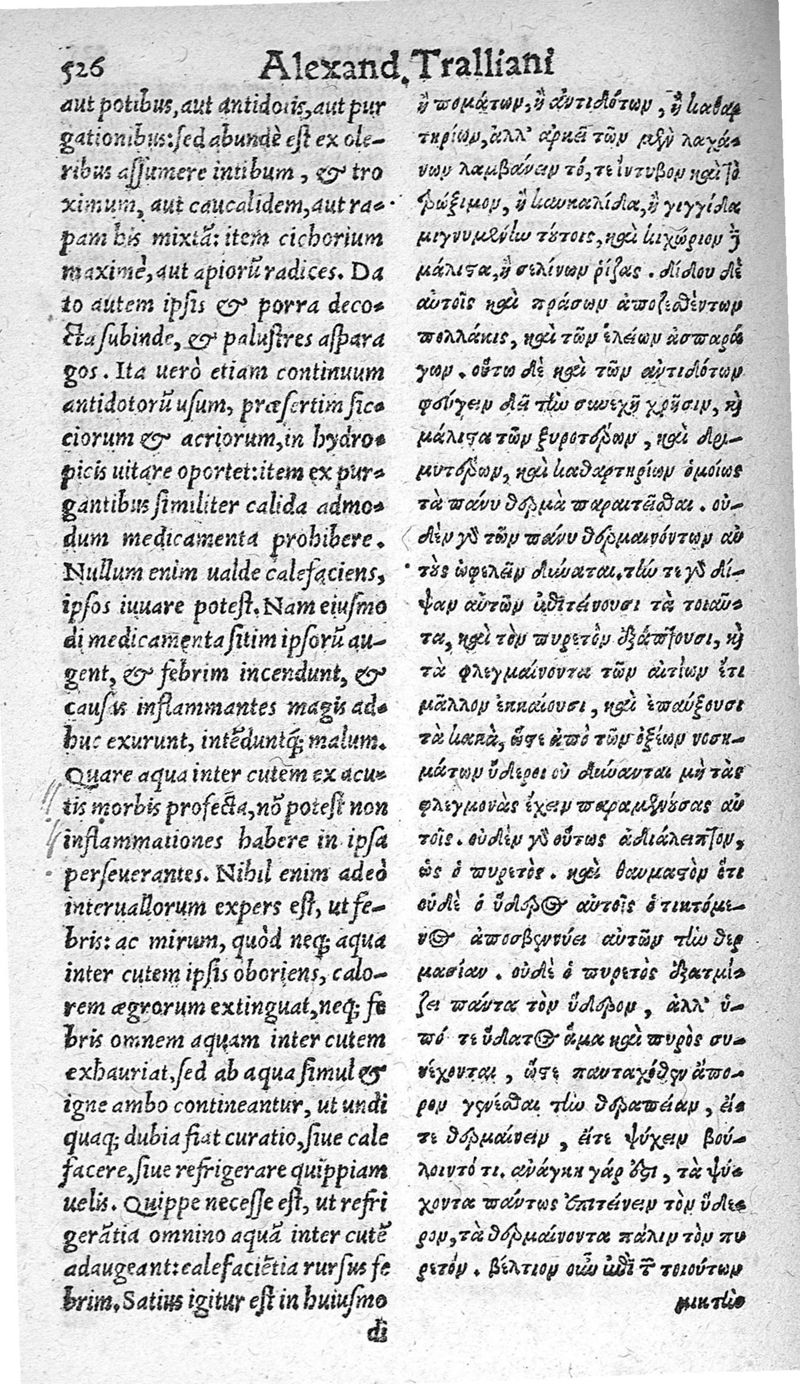 526
Alexand. Tralliani
aut potibus, aut antidotis, aut pur
gationibus: sed abundè est ex ole-
ribus assumere intibum, & tro
ximum, aut caucalidem, aut ra-
pam his mixtā: item cichorium
maximè, aut apiorū radices. Da
to autem ipsis & porra deco-
cta subinde, & palustres aspara
gos. Ita uerò etiam continuum
antidotorū usum, præsertim sic-
ciorum & acriorum, in hydro-
picis uitare oportet: item ex pur-
gantibus similiter calida admo-
dum medicamenta prohibere.
Nullum enim ualde calefaciens,
ipsos iuuare potest. Nam eiusmo
di medicamenta sitim ipsorū au-
gent, & febrim incendunt, &
causis inflammantes magis ad-
huc exurunt, intēduntq; malum.
Quare aqua inter cutem ex acu-
tis morbis profecta, nō potest non
inflammationes habere in ipsa
perseuerantes. Nihil enim adeò
interuallorum expers est, ut fe-
bris: ac mirum, quòd neq; aqua
inter cutem ipsis oboriens, calo-
rem ægrorum extinguat, neq; fe
bris omnem aquam inter cutem
exhauriat, sed ab aqua simul &
igne ambo contineantur, ut undi
quaq; dubia fiat curatio, siue cale
facere, siue refrigerare quippiam
uelis. Quippe necesse est, ut refri
gerātia omnino aquā inter cutē
adaugeant: calefaciētia rursus fe
brim. Satius igitur est in huiusmo
di
ἢ πομάτων, ἢ ἀντιδότων, ἢ καθαρ
τηρίων, ἀλλ' ἀρκεῖ τῶν μὲν λαχά-
νων λαμβάνειν τό, τε ἴντυβον καὶ τὸ
τρώξιμον, ἢ καυκαλίδα, ἢ γιγγίδα
μιγνυμένην τούτοις, καὶ κιχώριον ἢ
μάλιστα, ἢ σελίνων ῥίζας. δίδου δὲ
αὐτοῖς καὶ πράσων ἀποζεσθέντων
πολλάκις, καὶ τῶν ἑλείων ἀσπαρά
γων. οὕτω δὲ καὶ τῶν ἀντιδότων
φεύγειν δεῖ τὴν συνεχῆ χρῆσιν, καὶ
μάλιστα τῶν ξηροτέρων, καὶ δρι-
μυτέρων, καὶ καθαρτηρίων ὁμοίως
τὰ πάνυ θερμὰ παραιτεῖσθαι. οὐ-
δὲν γὰρ τῶν πάνυ θερμαινόντων αὐ
τοὺς ὠφελεῖν δύναται, τήν τε γὰρ δί-
ψαν αὐτῶν ἐπιτείνουσι τὰ τοιαῦ-
τα, καὶ τὸν πυρετὸν ἐξάπτουσι, καὶ
τὰ φλεγμαίνοντα τῶν αἰτίων ἔτι
μᾶλλον ἐκκαίουσι, καὶ ἐπαύξουσι
τὰ κακὰ, ὥστε ἀπὸ τῶν ὀξέων νοση-
μάτων ὕδεροι οὐ δύνανται μὴ τὰς
φλεγμονὰς ἔχειν παραμενούσας αὐ
τοῖς. οὐδὲν γὰρ οὕτως ἀδιάλειπτον,
ὡς ὁ πυρετὸς. καὶ θαυμαστὸν ὅτι
οὐδὲ ὁ ὕδερος αὐτοῖς ὁ τικτόμε-
νος ἀποσβεννύει αὐτῶν τὴν θερ
μασίαν. οὐδὲ ὁ πυρετὸς ἐξατμί-
ζει πάντα τὸν ὕδερον, ἀλλ' ὑ-
πό τε ὕδατος ἅμα καὶ πυρὸς συ-
νέχονται, ὥστε πανταχόθεν ἄπο-
ρον γενέσθαι τὴν θεραπείαν, εἴ-
τε θερμαίνειν, εἴτε ψύχειν βού-
λοιντό τι. ἀνάγκη γάρ ἐστι, τὰ ψύ-
χοντα πάντως ἐπιτείνειν τὸν ὕδε-
ρον, τὰ θερμαίνοντα πάλιν τὸν πυ
ρετόν. βέλτιον οὖν ἐπὶ τῶν τοιούτων
μικτὴν